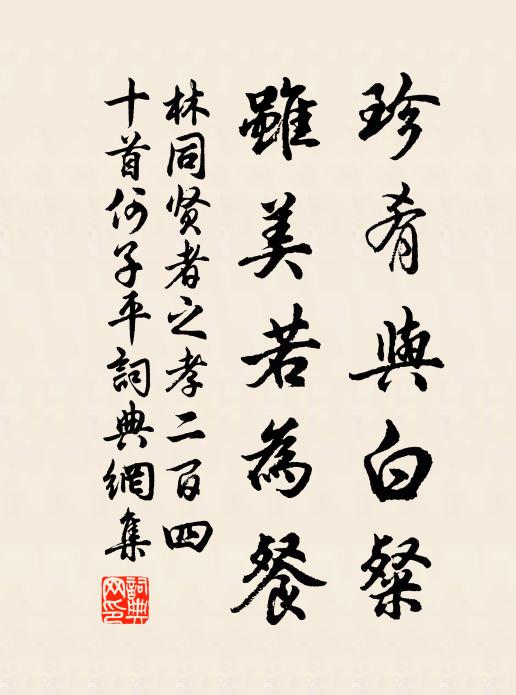 珍肴與白粲
雖美若為餐
林同贤者之孝二百四
十首何子平詞典網集
詞典網印